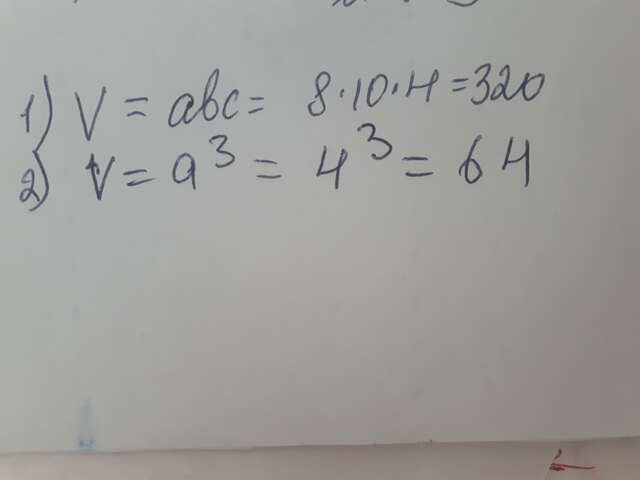 1) V = abc = 8·10·4 = 320
2) V = a³ = 4³ = 64